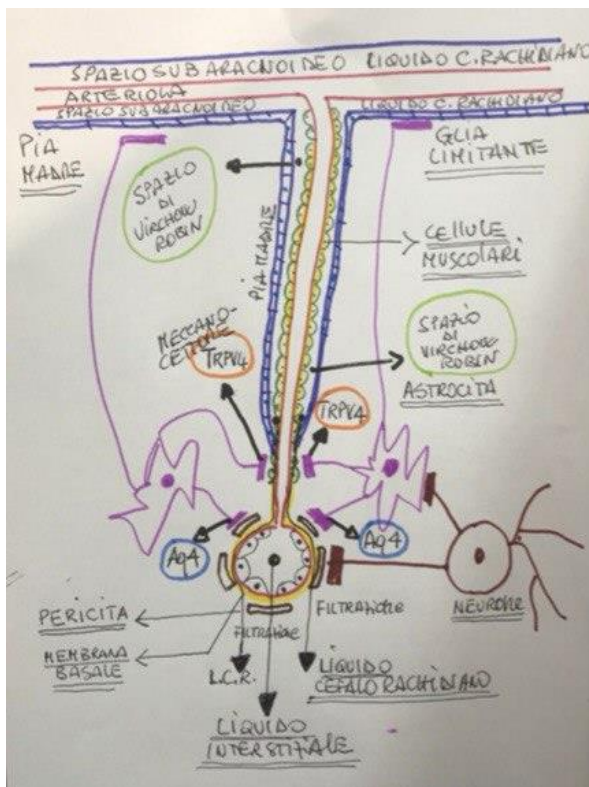 SPAZIO SUBARACNOIDEO LIQUIDO C. RACHIDIANO
ARTERIOLA
SPAZIO SUBARACNOIDEO
LIQUIDO C. RACHIDIANO
PIA
MADRE
GLIA
LIMITANTE
SPAZIO
DI
VIRCHOW
ROBIN
PIA MADRE
CELLULE
MUSCOLARI
MECCANO-
CETTORE
TRPV4
SPAZIO
DI
VIRCHOW
ROBIN
TRPV4
ASTROCITA
Aq4
Aq4
NEURONE
PERICITA
FILTRAZIONE
FILTRAZIONE
MEMBRANA
BASALE
L.C.R.
LIQUIDO
CEFALO RACHIDIANO
LIQUIDO
INTERSTIZIALE